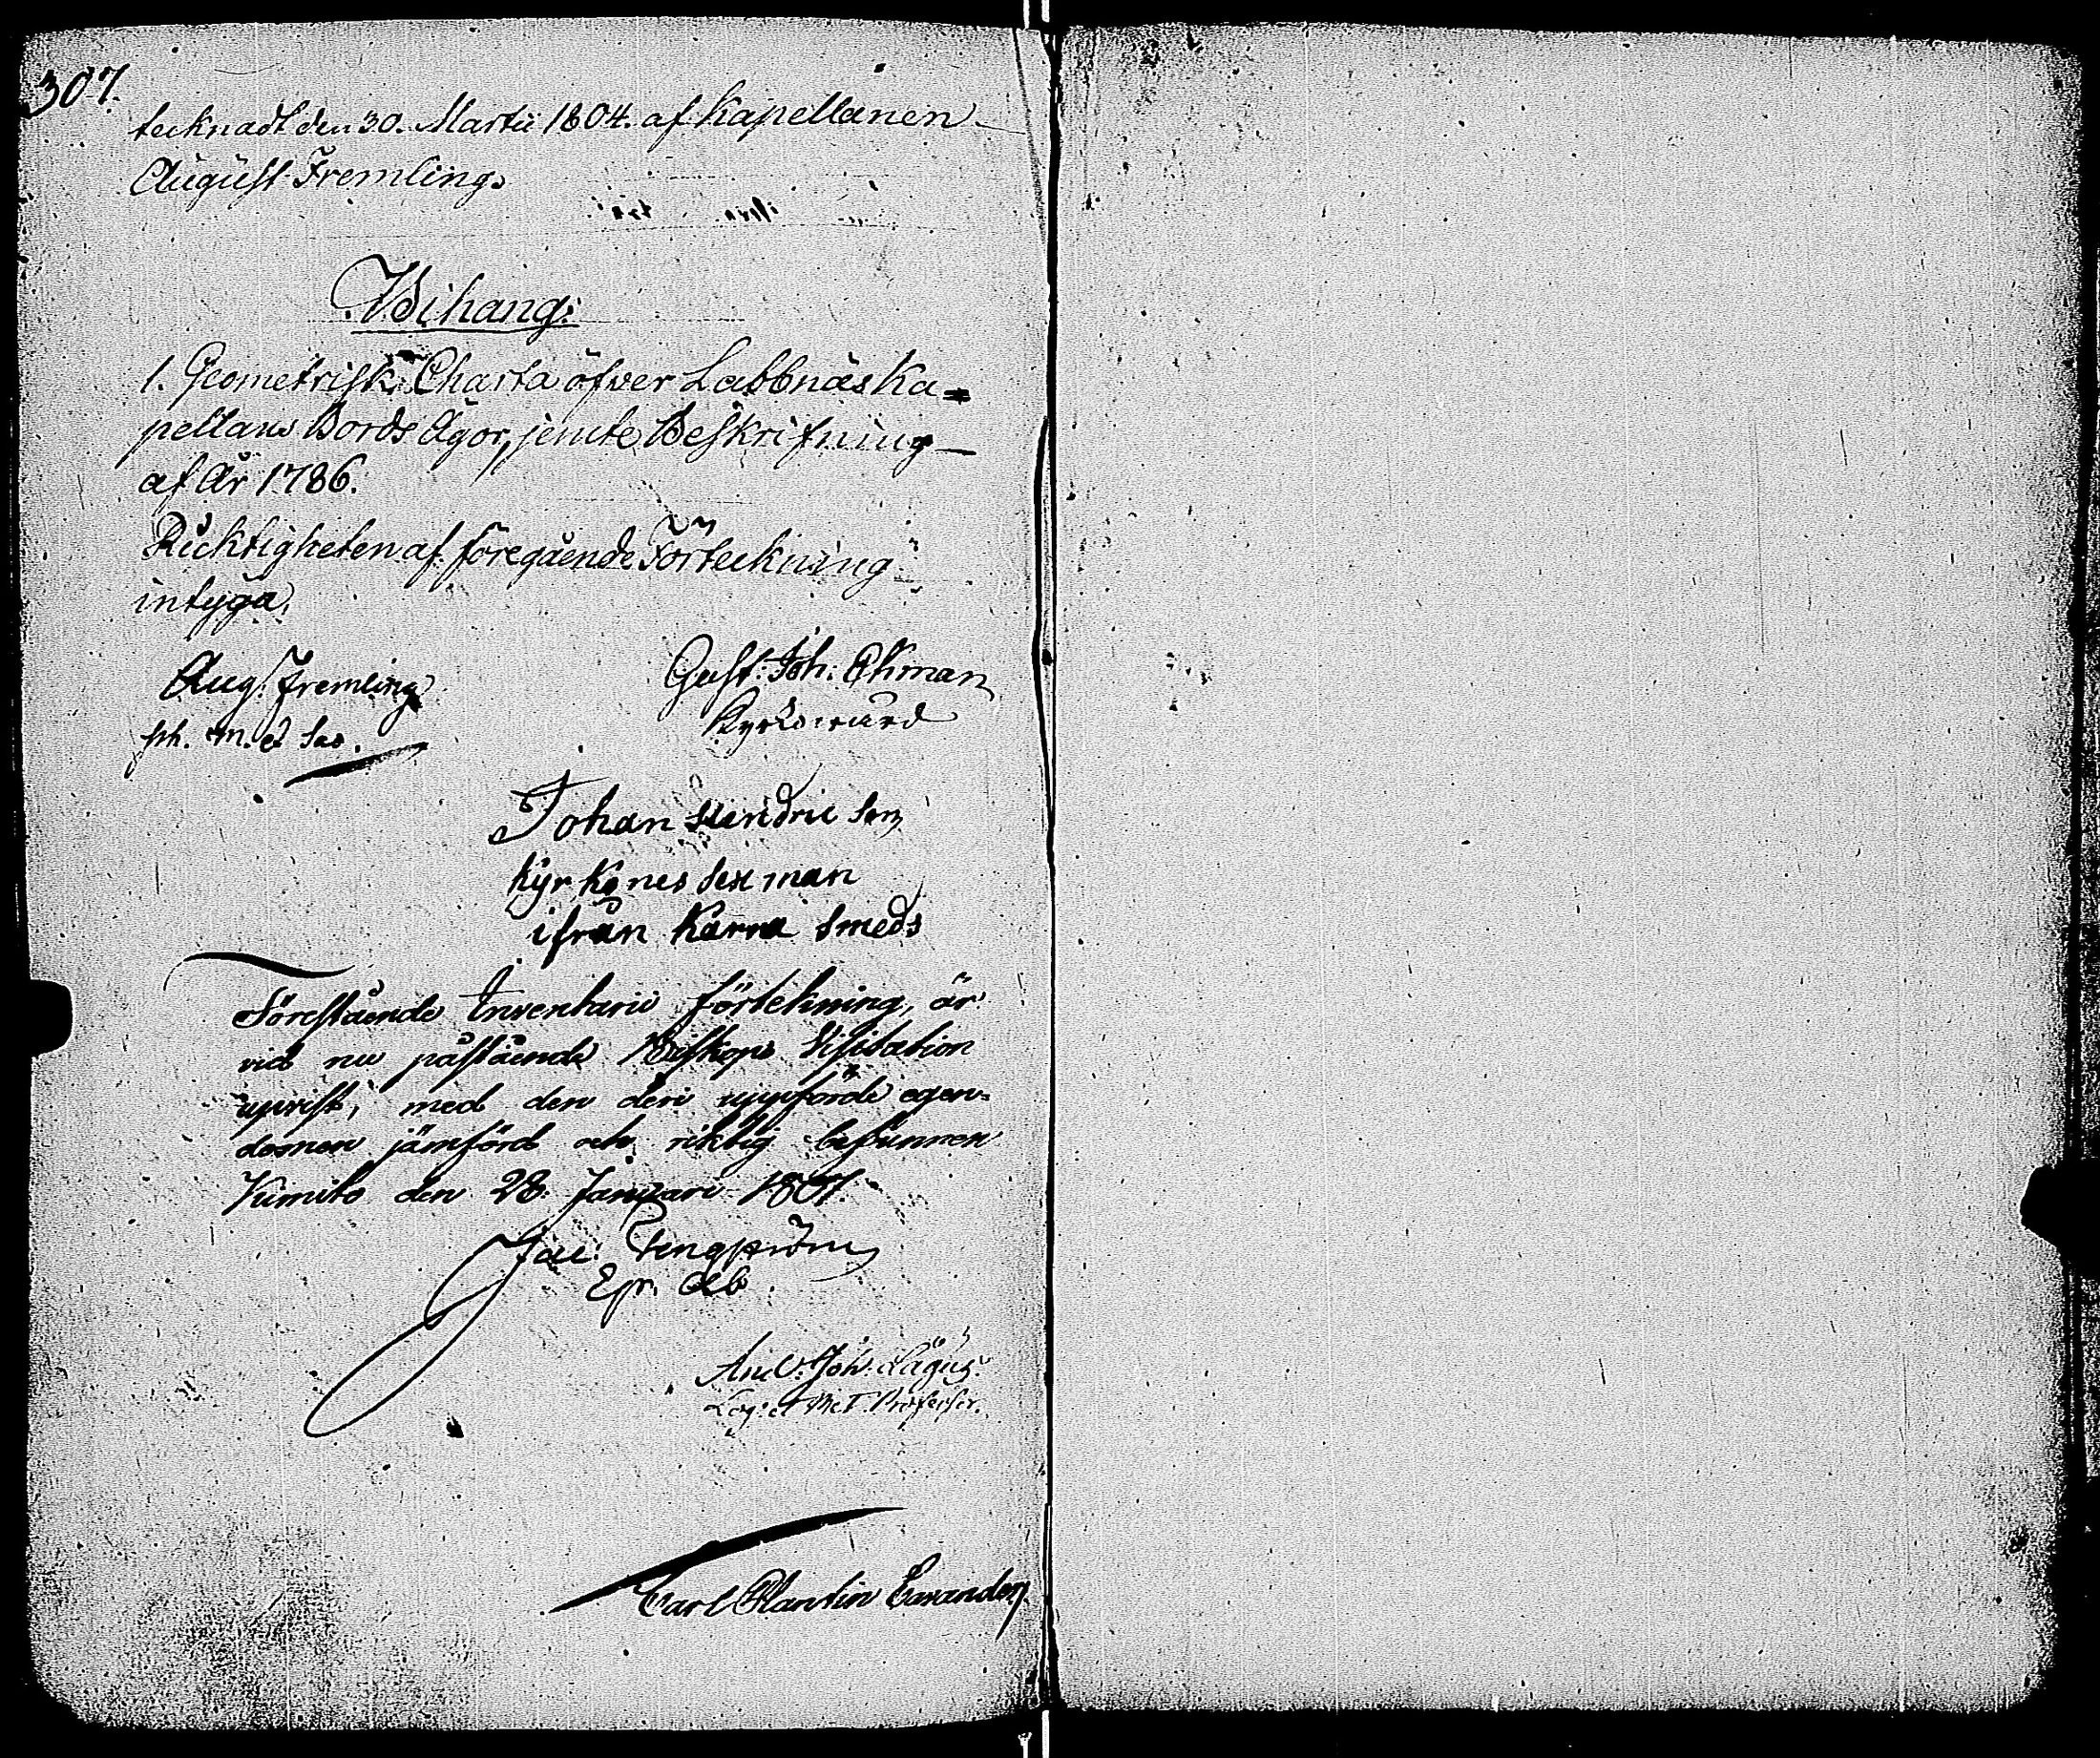 307.
tecknadt den 30. Martii 1804. af Kapellanen
August Fremling.
Bihang:
1. Geometrisk Charta öfver Labbnäs Ka=
pellans Bords Ägor, jemte Beskrifning
af År 1786.
Ricktigheten af föregående Förteckning
intyga.
Aug. Fremling
ph. m. et Sac.
Gust: Joh: Ekman
Kyrkowärd
Johan Hendric Son
Kyrkones sexman
ifrån Kärra Smeds
Förestående Inventarii förtekning, är
vid nu påstående Biskops Visitation
upvist, med den deri uppförde egen=
domen jämförd och riktig befunnen
Kimito den 28 Januarii 1807.
Jac: Tengström
Ep. Ab.
And: Joh: Lagus.
Log: et Met. Professor.
Carl Plantin Cavander